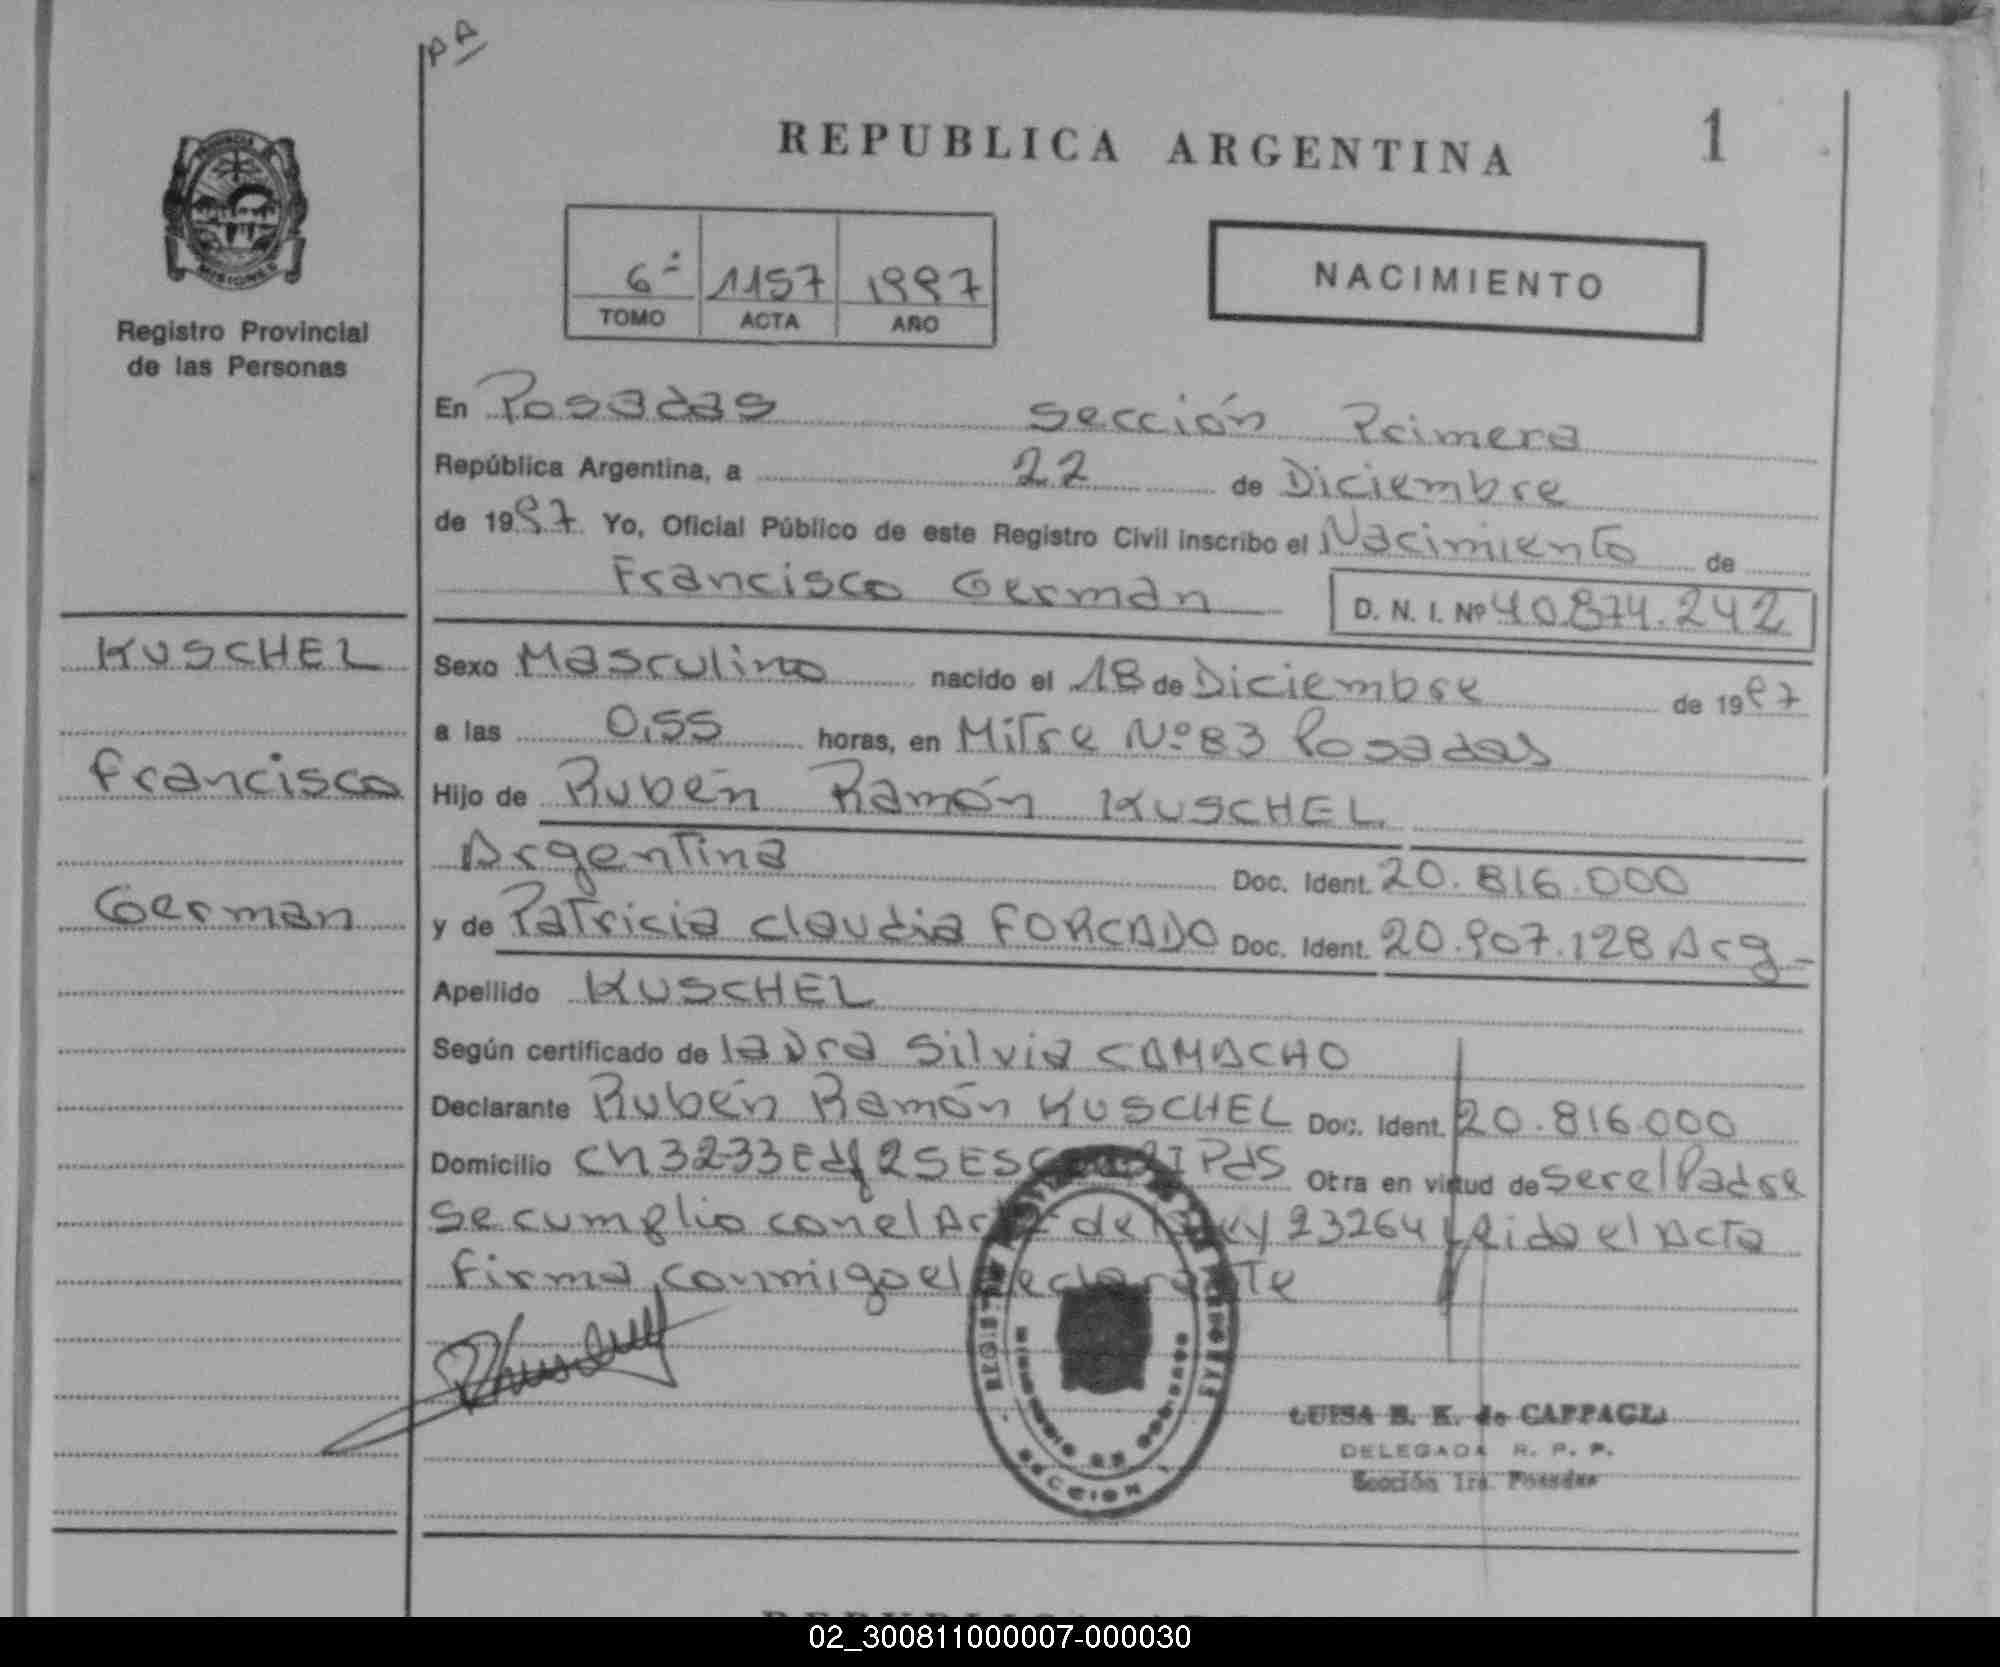 PA
REPUBLICA ARGENTINA
1
6ª 1157 1997
TOMO ACTA AÑO
NACIMIENTO
Registro Provincial
de las Personas
En Posadas sección Primera
República Argentina, a 22 de Diciembre
de 1997 Yo, Oficial Público de este Registro Civil inscribo el Nacimiento de
Francisco German D. N. I. Nº 40.874.242
KUSCHEL
Francisco
German
Sexo Masculino nacido el 18 de Diciembre de 1997
a las 0,55 horas, en Mitre Nº 83 Posadas
Hijo de Rubén Ramón KUSCHEL
Argentina Doc. Ident. 20.816.000
y de Patricia Claudia FORCADO Doc. Ident. 20.907.128 Arg
Apellido KUSCHEL
Según certificado de la Dra Silvia CAMACHO
Declarante Rubén Ramón KUSCHEL Doc. Ident. 20.816.000
Domicilio CH 32-33 Edf 25 ESC Pds Otra en virtud de ser el Padre
se cumplio con el Art de Ley 23264 Leido el Acta
firma conmigo el declarante
SECCION 1
LUISA B. K. de CAPPAGLI
DELEGADA R. P. P.
Sección 1ra. Posadas
02_300811000007-000030